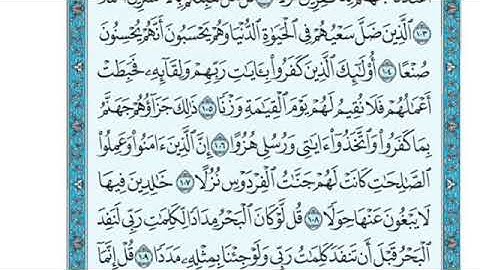 ١٠٣
ٱلَّذِينَ ضَلَّ سَعْيُهُمْ فِى ٱلْحَيَوٰةِ ٱلدُّنْيَا وَهُمْ يَحْسَبُونَ أَنَّهُمْ يُحْسِنُونَ
صُنْعًا ١٠٤ أُو۟لَٰٓئِكَ ٱلَّذِينَ كَفَرُوا۟ بِـَٔايَٰتِ رَبِّهِمْ وَلِقَآئِهِۦ فَحَبِطَتْ
أَعْمَٰلُهُمْ فَلَا نُقِيمُ لَهُمْ يَوْمَ ٱلْقِيَٰمَةِ وَزْنًا ١٠٥ ذَٰلِكَ جَزَآؤُهُمْ جَهَنَّمُ
بِمَا كَفَرُوا۟ وَٱتَّخَذُوٓا۟ ءَايَٰتِى وَرُسُلِى هُزُوًا ١٠٦ إِنَّ ٱلَّذِينَ ءَامَنُوا۟ وَعَمِلُوا۟
ٱلصَّٰلِحَٰتِ كَانَتْ لَهُمْ جَنَّٰتُ ٱلْفِرْدَوْسِ نُزُلًا ١٠٧ خَٰلِدِينَ فِيهَا
لَا يَبْغُونَ عَنْهَا حِوَلًا ١٠٨ قُل لَّوْ كَانَ ٱلْبَحْرُ مِدَادًا لِّكَلِمَٰتِ رَبِّى لَنَفِدَ
ٱلْبَحْرُ قَبْلَ أَن تَنفَدَ كَلِمَٰتُ رَبِّى وَلَوْ جِئْنَا بِمِثْلِهِۦ مَدَدًا ١٠٩ قُلْ إِنَّمَآ